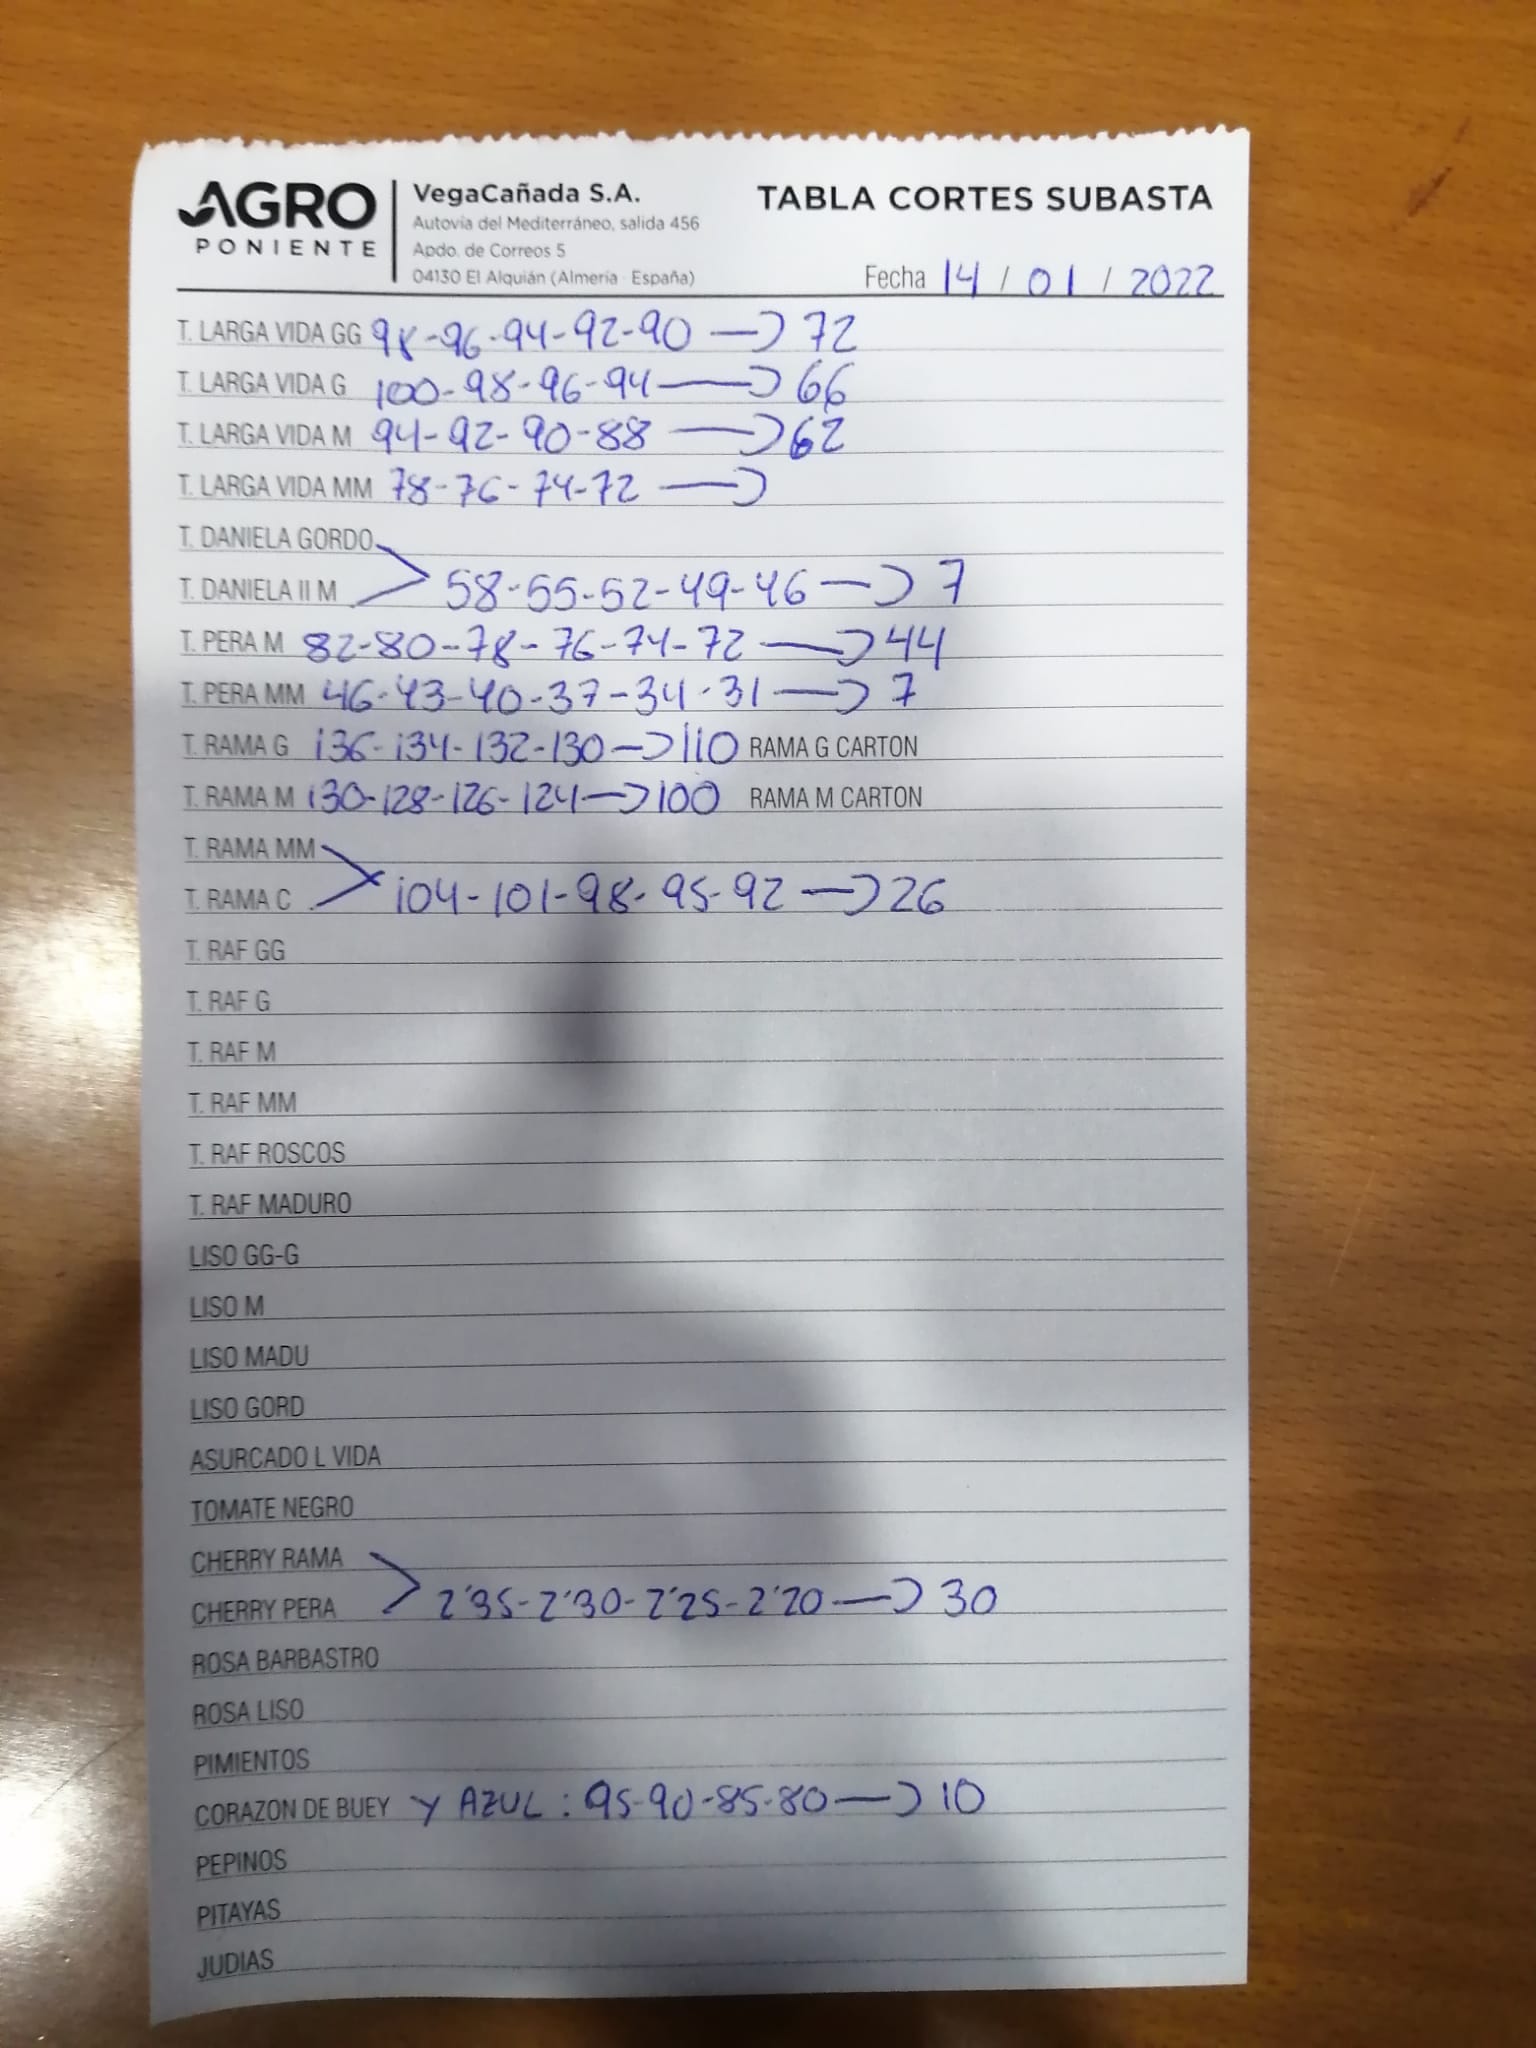 AGRO
PONIENTE
VegaCañada S.A.
Autovía del Mediterráneo, salida 456
Apdo. de Correos 5
04130 El Alquián (Almería · España)
TABLA CORTES SUBASTA
Fecha 14 / 01 / 2022
T. LARGA VIDA GG 98-96-94-92-90 → 72
T. LARGA VIDA G 100-98-96-94 → 66
T. LARGA VIDA M 94-92-90-88 → 62
T. LARGA VIDA MM 78-76-74-72 →
T. DANIELA GORDO
T. DANIELA II M 58-55-52-49-46 → 7
T. PERA M 82-80-78-76-74-72 → 44
T. PERA MM 46-43-40-37-34-31 → 7
T. RAMA G 136-134-132-130 → 110 RAMA G CARTON
T. RAMA M 130-128-126-124 → 100 RAMA M CARTON
T. RAMA MM
T. RAMA C 104-101-98-95-92 → 26
T. RAF GG
T. RAF G
T. RAF M
T. RAF MM
T. RAF ROSCOS
T. RAF MADURO
LISO GG-G
LISO M
LISO MADU
LISO GORD
ASURCADO L VIDA
TOMATE NEGRO
CHERRY RAMA
CHERRY PERA 2'35-2'30-2'25-2'20 → 30
ROSA BARBASTRO
ROSA LISO
PIMIENTOS
CORAZON DE BUEY Y AZUL: 95-90-85-80 → 10
PEPINOS
PITAYAS
JUDIAS